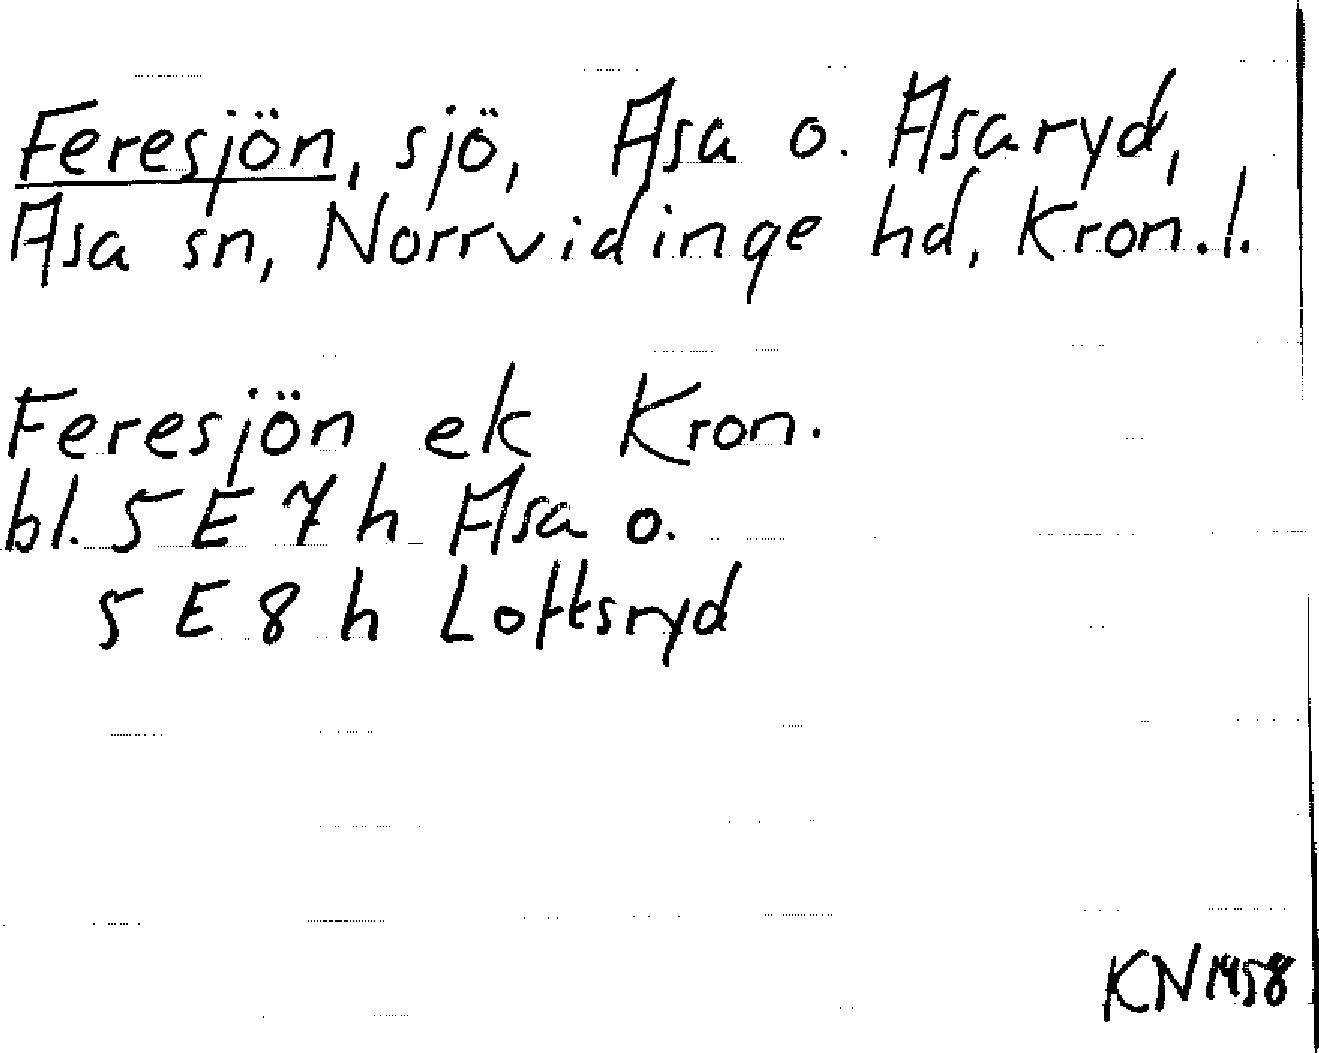 Feresjön, sjö, Asa o. Asaryd,
Asa sn, Norrvidinge hd, Kron.l.
Feresjön ek Kron.
bl. 5 E 7 h Asa o.
5 E 8 h Loftsryd
KN 1958